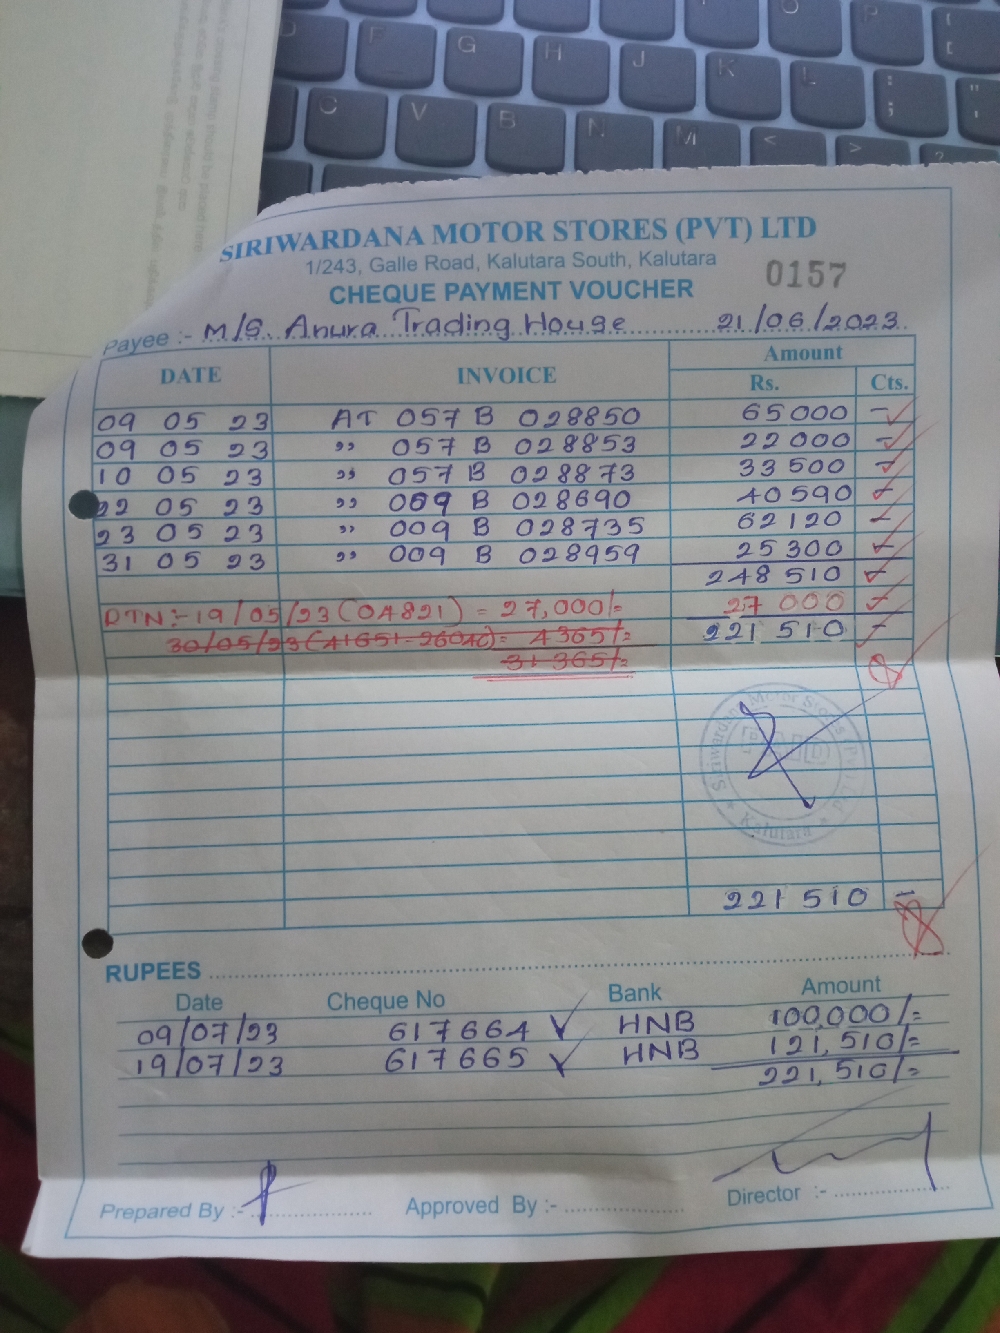 D F G H J K L : ;
C V B N M < >
SIRIWARDANA MOTOR STORES (PVT) LTD
1/243, Galle Road, Kalutara South, Kalutara
0157
CHEQUE PAYMENT VOUCHER
Payee :- M/S. Anura Trading House 21/06/2023
DATE INVOICE Amount
Rs. Cts.
09 05 23 AT 057 B 028850 65 000 -
09 05 23 " 057 B 028853 22 000 -
10 05 23 " 057 B 028873 33 500 -
22 05 23 " 009 B 028690 40 590 -
23 05 23 " 009 B 028735 62 120 -
31 05 23 " 009 B 028959 25 300 -
248 510 -
RTN:- 19/05/23 (04821) = 27,000/= 27 000 -
30/05/23 (41651-26040) = 4365/= 221 510 -
31 365/=
Siriwardana Motor Stores (Pvt) Ltd
Kalutara
221 510 -
RUPEES
Date Cheque No Bank Amount
09/07/23 617664 HNB 100,000/=
19/07/23 617665 HNB 121,510/=
221,510/=
Prepared By :- Approved By :- Director :-